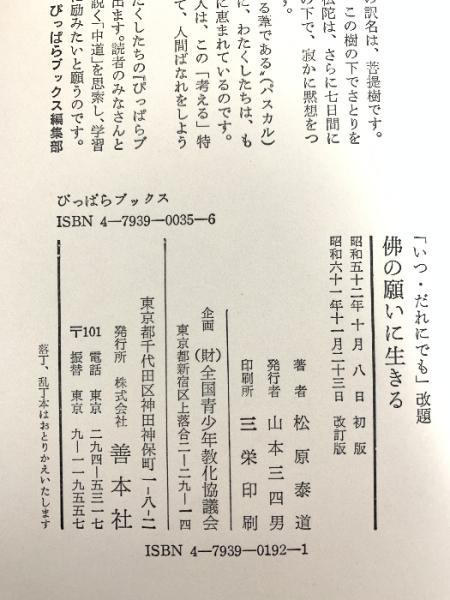 の訳名は、菩提樹です。
この樹の下でさとりを
仏陀は、さらに七日間に
の下で、寂かに黙想をつ
す。
る葦である〟(パスカル)
に、わたくしたちは、も
に恵まれているのです。
人は、この「考える」特
て、人間ばなれをしよう
たくしたちの『ぴっぱらブ
出ます。読者のみなさんと
説く「中道」を思索し、学習
に励みたいと願うのです。
ぴっぱらブックス編集部
ぴっぱらブックス
ISBN 4-7939-0035-6
「いつ・だれにでも」改題
佛の願いに生きる
昭和五十二年十月八日 初版
昭和六十一年十一月二十三日 改訂版
著者 松原泰道
発行者 山本三四男
印刷所 三栄印刷
企画 (財)全国青少年教化協議会
東京都新宿区上落合二-二九-一四
東京都千代田区神田神保町一-八-二
発行所 株式会社 善本社
〒101 電話 東京 二九四-五三一七
振替 東京 九-一一九五五七
落丁、乱丁本はおとりかえいたします
ISBN 4-7939-0192-1